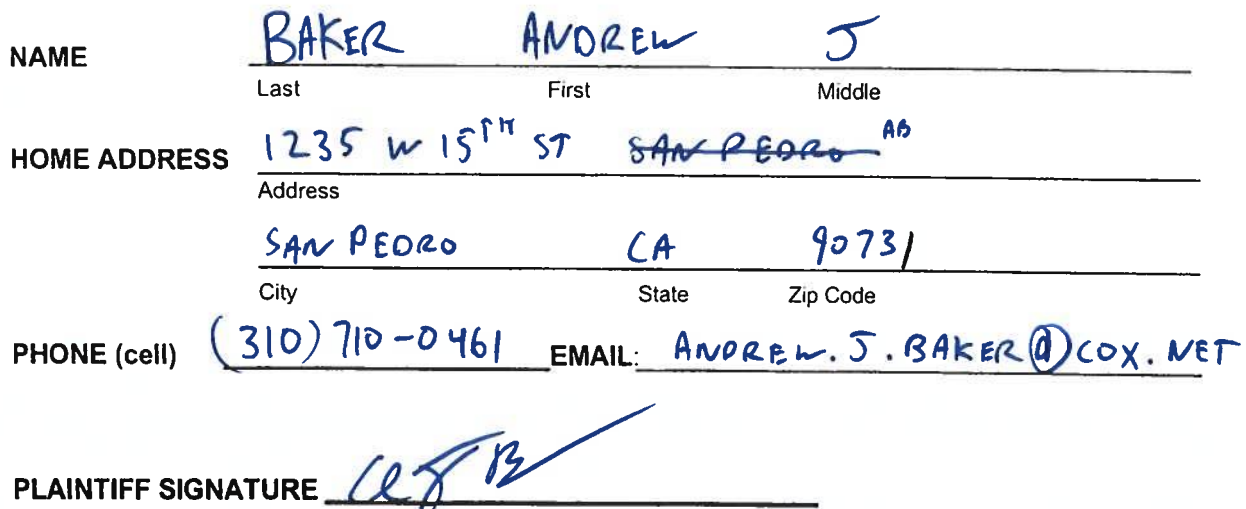 NAME BAKER ANDREW J
Last First Middle
HOME ADDRESS 1235 W 15TH ST SAN PEDRO AB
Address
SAN PEDRO CA 90731
City State Zip Code
PHONE (cell) (310) 710-0461 EMAIL: ANDREW.J.BAKER@COX.NET
PLAINTIFF SIGNATURE